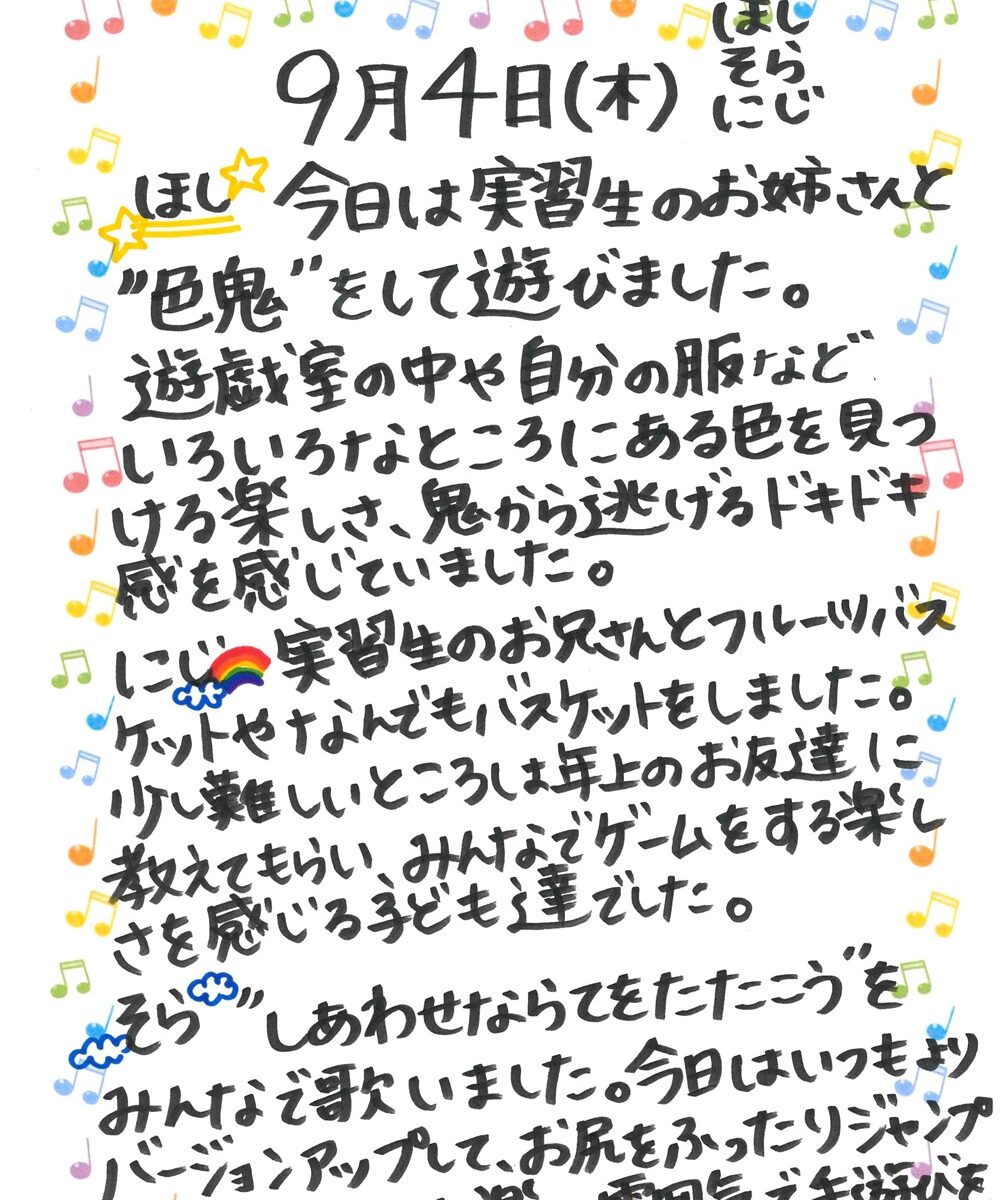 9月4日(木)
ほし
そら
にじ
ほし 今日は実習生のお姉さんと
"色鬼"をして遊びました。
遊戯室の中や自分の服など
いろいろなところにある色を見つ
ける楽しさ、鬼から逃げるドキドキ
感を感じていました。
にじ 実習生のお兄さんとフルーツバス
ケットやなんでもバスケットをしました。
少し難しいところは年上のお友達に
教えてもらい、みんなでゲームをする楽し
さを感じる子ども達でした。
そら "しあわせならてをたたこう"を
みんなで歌いました。今日はいつもより
バージョンアップして、お尻をふったりジャンプ